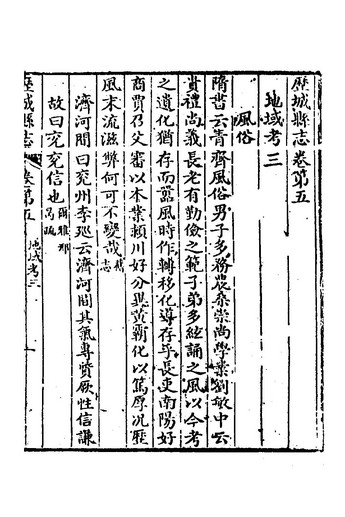 歷城縣志卷第五
地域考三
風俗
隋書云青齊風俗男子多務農桑崇尚學業劉敏中云
貴禮尚義長老有勤儉之範子弟多絃誦之風以今考
之遺化猶存而囂風時作轉移化導存乎長吏南陽好
商賈召父富以本業潁川好分異黃霸化以篤厚況歷
風末流滋弊何可不變哉舊志
濟河間曰兗州李廵云濟河間其氣專質厥性信謙
故曰兗兗信也爾雅邢昺疏
歷城縣志 卷第五 地域考三